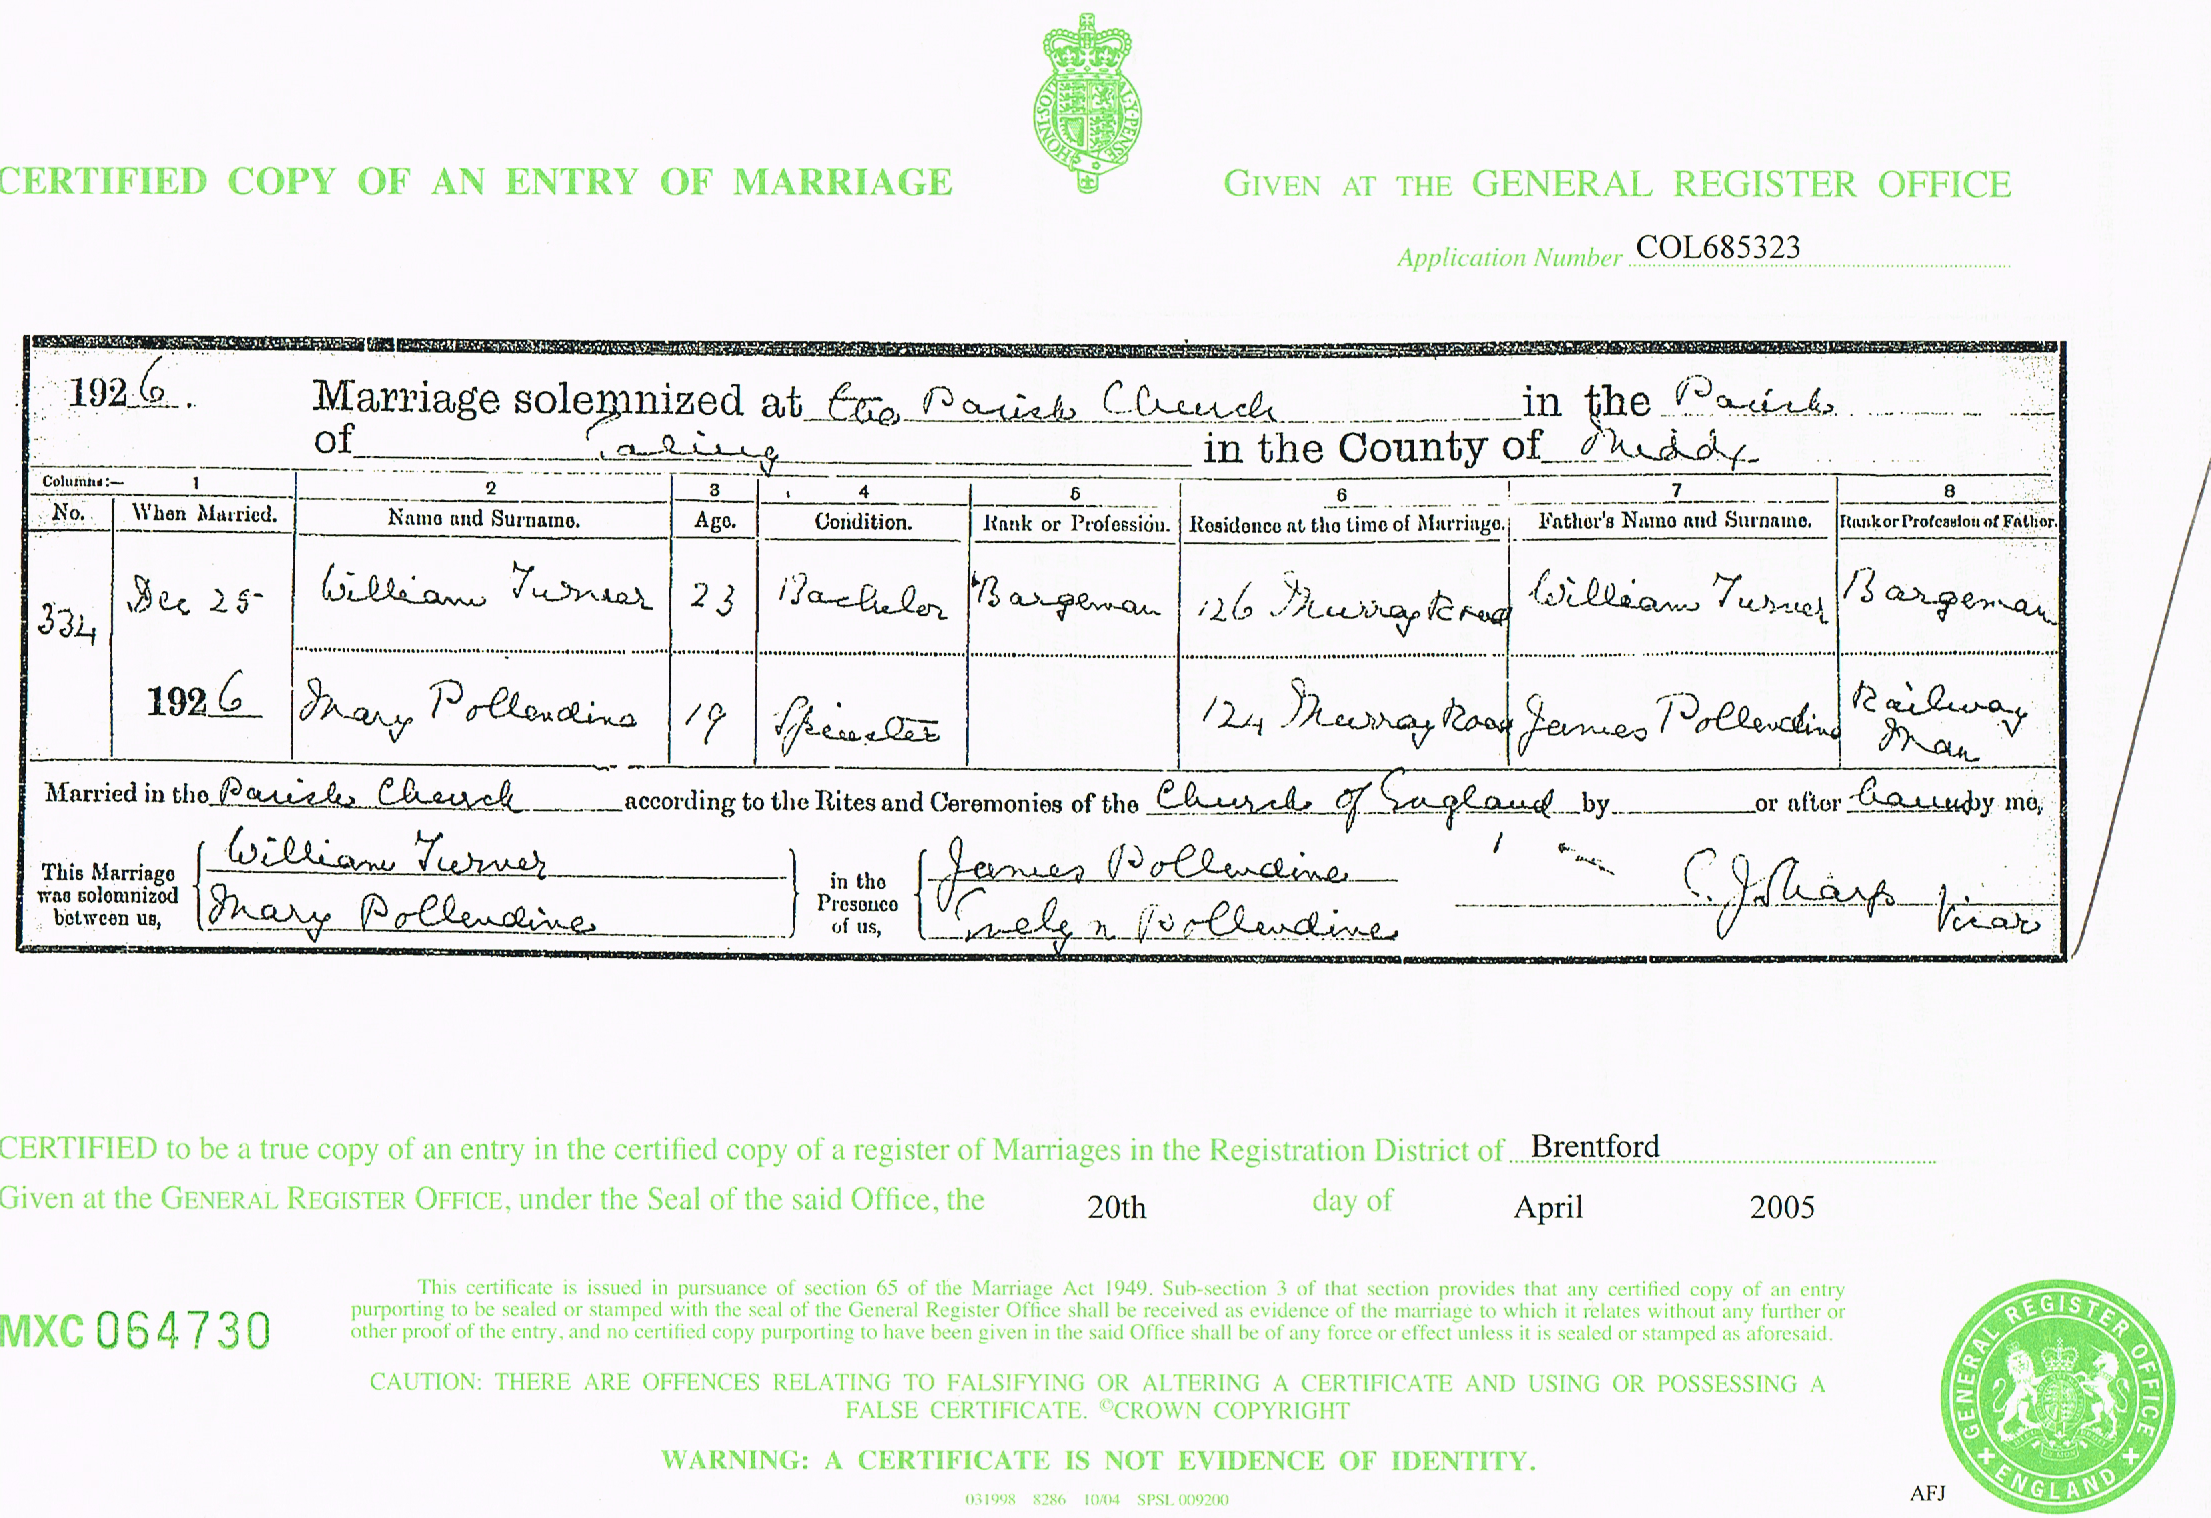 HONI·SOIT QUI MAL·Y·PENSE
CERTIFIED COPY OF AN ENTRY OF MARRIAGE
GIVEN AT THE GENERAL REGISTER OFFICE
Application Number COL685323
1926. Marriage solemnized at the Parish Church in the Parish
of Ealing in the County of Middx
Columns:— 1 2 3 4 5 6 7 8
No. When Married. Name and Surname. Age. Condition. Rank or Profession. Residence at the time of Marriage. Father's Name and Surname. Rank or Profession of Father.
334 Dec 25 William Turner 23 Bachelor Bargeman 126 Murray Road William Turner Bargeman
1926 Mary Pollendine 19 Spinster 124 Murray Road James Pollendine Railway Man
Married in the Parish Church according to the Rites and Ceremonies of the Church of England by or after Banns by me,
This Marriage was solemnized between us, William Turner Mary Pollendine in the Presence of us, James Pollendine Evelyn Pollendine C. J. Sharp Vicar
CERTIFIED to be a true copy of an entry in the certified copy of a register of Marriages in the Registration District of Brentford
Given at the GENERAL REGISTER OFFICE, under the Seal of the said Office, the 20th day of April 2005
This certificate is issued in pursuance of section 65 of the Marriage Act 1949. Sub-section 3 of that section provides that any certified copy of an entry
purporting to be sealed or stamped with the seal of the General Register Office shall be received as evidence of the marriage to which it relates without any further or
other proof of the entry, and no certified copy purporting to have been given in the said Office shall be of any force or effect unless it is sealed or stamped as aforesaid.
MXC 064730
CAUTION: THERE ARE OFFENCES RELATING TO FALSIFYING OR ALTERING A CERTIFICATE AND USING OR POSSESSING A
FALSE CERTIFICATE. ©CROWN COPYRIGHT
WARNING: A CERTIFICATE IS NOT EVIDENCE OF IDENTITY.
031998 8286 10/04 SPSL 009200
AFJ
GENERAL REGISTER OFFICE
ENGLAND